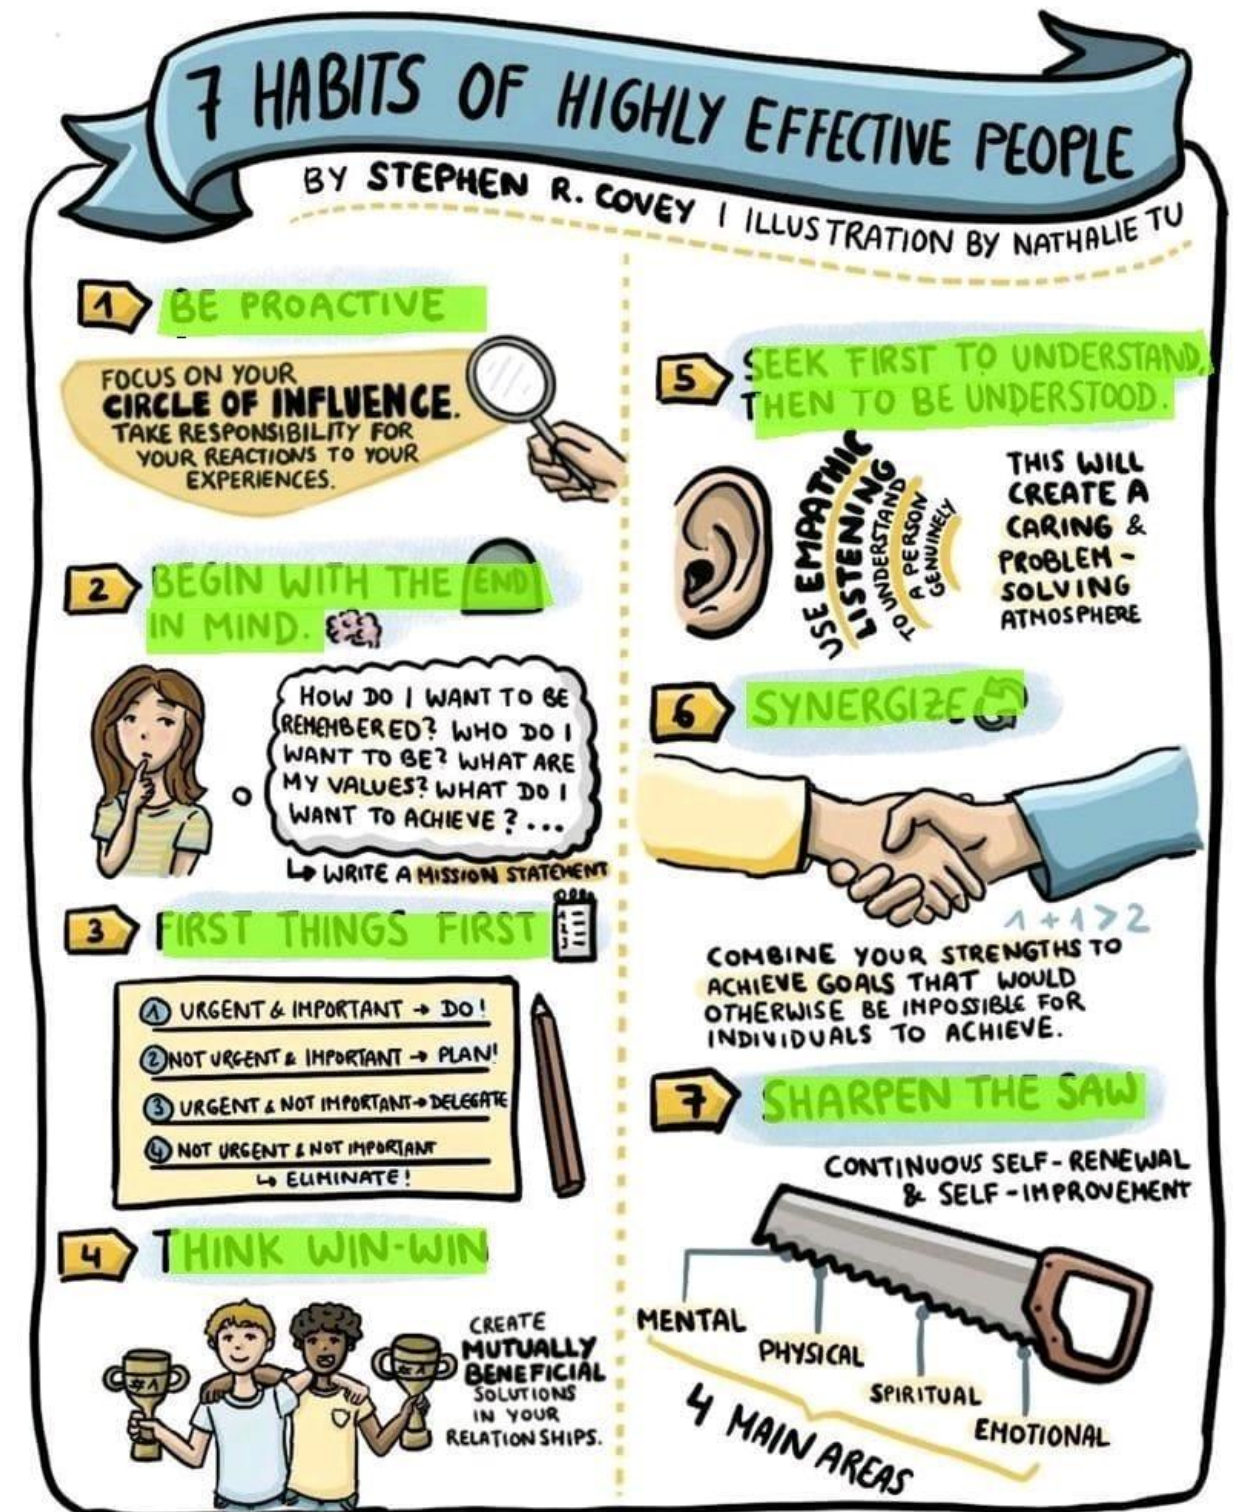 7 HABITS OF HIGHLY EFFECTIVE PEOPLE
BY STEPHEN R. COVEY | ILLUSTRATION BY NATHALIE TU
1 BE PROACTIVE
FOCUS ON YOUR
CIRCLE OF INFLUENCE.
TAKE RESPONSIBILITY FOR
YOUR REACTIONS TO YOUR
EXPERIENCES.
2 BEGIN WITH THE END
IN MIND.
HOW DO I WANT TO BE
REMEMBERED? WHO DO I
WANT TO BE? WHAT ARE
MY VALUES? WHAT DO I
WANT TO ACHIEVE? ...
↳ WRITE A MISSION STATEMENT
3 FIRST THINGS FIRST
1 URGENT & IMPORTANT → DO!
2 NOT URGENT & IMPORTANT → PLAN!
3 URGENT & NOT IMPORTANT → DELEGATE
4 NOT URGENT & NOT IMPORTANT
↳ ELIMINATE!
4 THINK WIN-WIN
#1
#1
CREATE
MUTUALLY
BENEFICIAL
SOLUTIONS
IN YOUR
RELATIONSHIPS.
5 SEEK FIRST TO UNDERSTAND,
THEN TO BE UNDERSTOOD.
USE EMPATHIC
LISTENING
TO UNDERSTAND
A PERSON
GENUINELY
THIS WILL
CREATE A
CARING &
PROBLEM-
SOLVING
ATMOSPHERE
6 SYNERGIZE
1+1>2
COMBINE YOUR STRENGTHS TO
ACHIEVE GOALS THAT WOULD
OTHERWISE BE IMPOSSIBLE FOR
INDIVIDUALS TO ACHIEVE.
7 SHARPEN THE SAW
CONTINUOUS SELF-RENEWAL
& SELF-IMPROVEMENT
MENTAL
PHYSICAL
SPIRITUAL
EMOTIONAL
4 MAIN AREAS